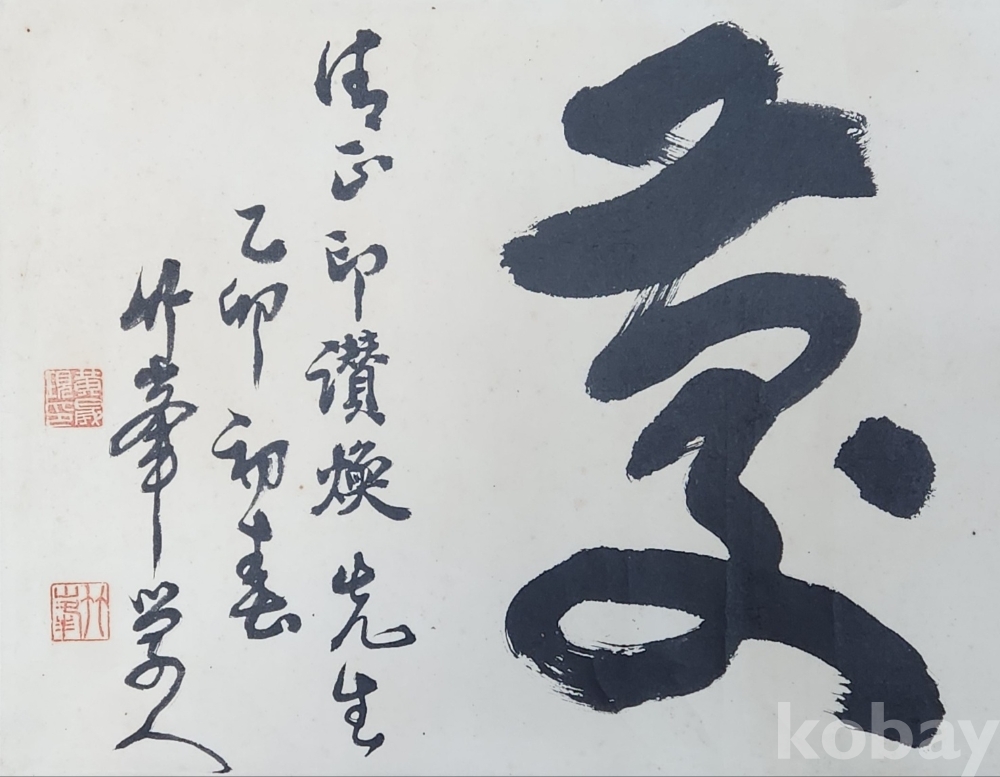 清正印讚煥先生
乙卯初春
竹峯学人
kobay